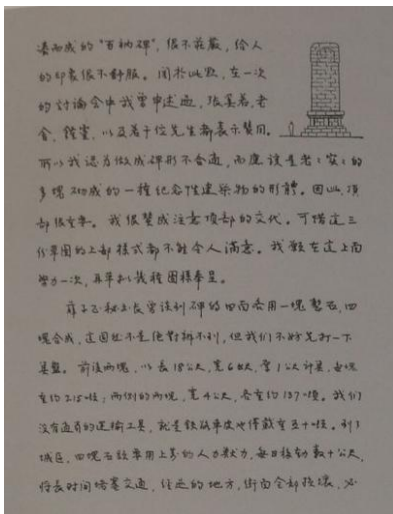 凑而成的“百衲碑”，很不庄严，给人
的印象很不舒服。关于此点，在一次
的讨论会中我曾申述过，张奚若、老
舍、钟灵，以及若干位先生都表示赞同。
所以我认为做成碑形不合适，而应该是老:实:的
多块砌成的一种纪念性建筑物的形体。因此，顶
部很重要。我很赞成注意顶部的交代。可惜这三
份草图的上部样式都不能令人满意。我愿在这上面
努力一次，再草拟几种图样奉呈。
薛子正秘书长曾谈到碑的四面各用一块整石，四
块合成，这固然不是绝对办不到，但我们不妨先打一下
算盘。前后两块，以长18公尺，宽6公尺，厚1公尺计算，每块
重约215吨；两侧的两块，宽4公尺，各重约137吨。我们
没有适当的运输工具，就是铁路车皮也仅载重五十吨。到了
城区，四块石头要用上等的人力兽力，每日移动数十公尺，
将长时间堵塞交通，经过的地方，街面全部损坏，必